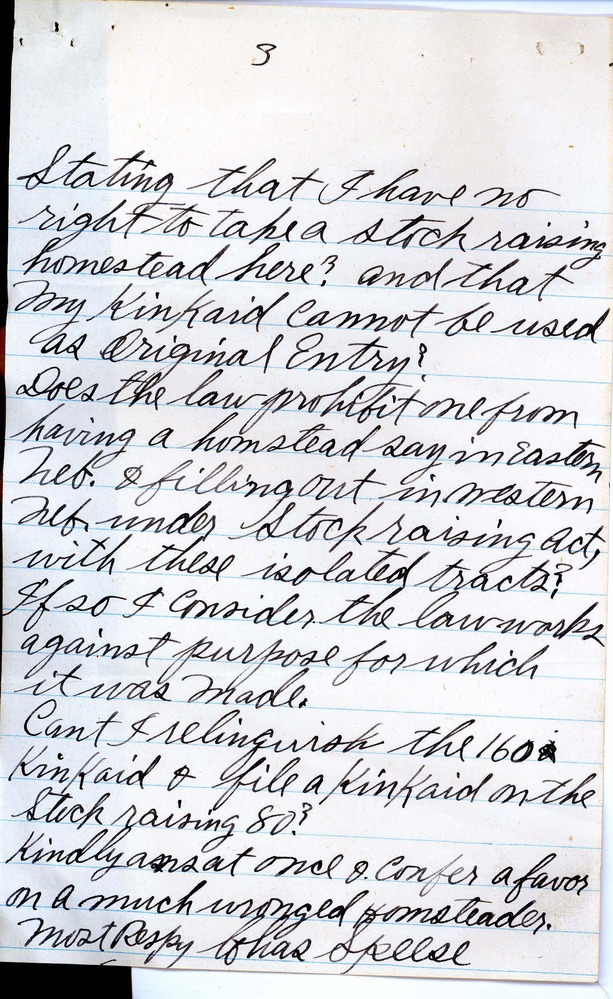 3
Stating that I have no
right to take a stock raising
homestead here? and that
my KinKaid cannot be used
as Original Entry?
Does the law prohibit one from
having a homstead say in Eastern
Neb. & filling out in western
Neb. under Stock raising act,
with these isolated tracts?
If so I consider the law works
against purpose for which
it was made.
Cant I relinquish the 160
KinKaid & file a KinKaid on the
Stock raising 80?
Kindly ans at once & confer a favor
on a much wronged Homsteader.
Most Respy Chas Speese